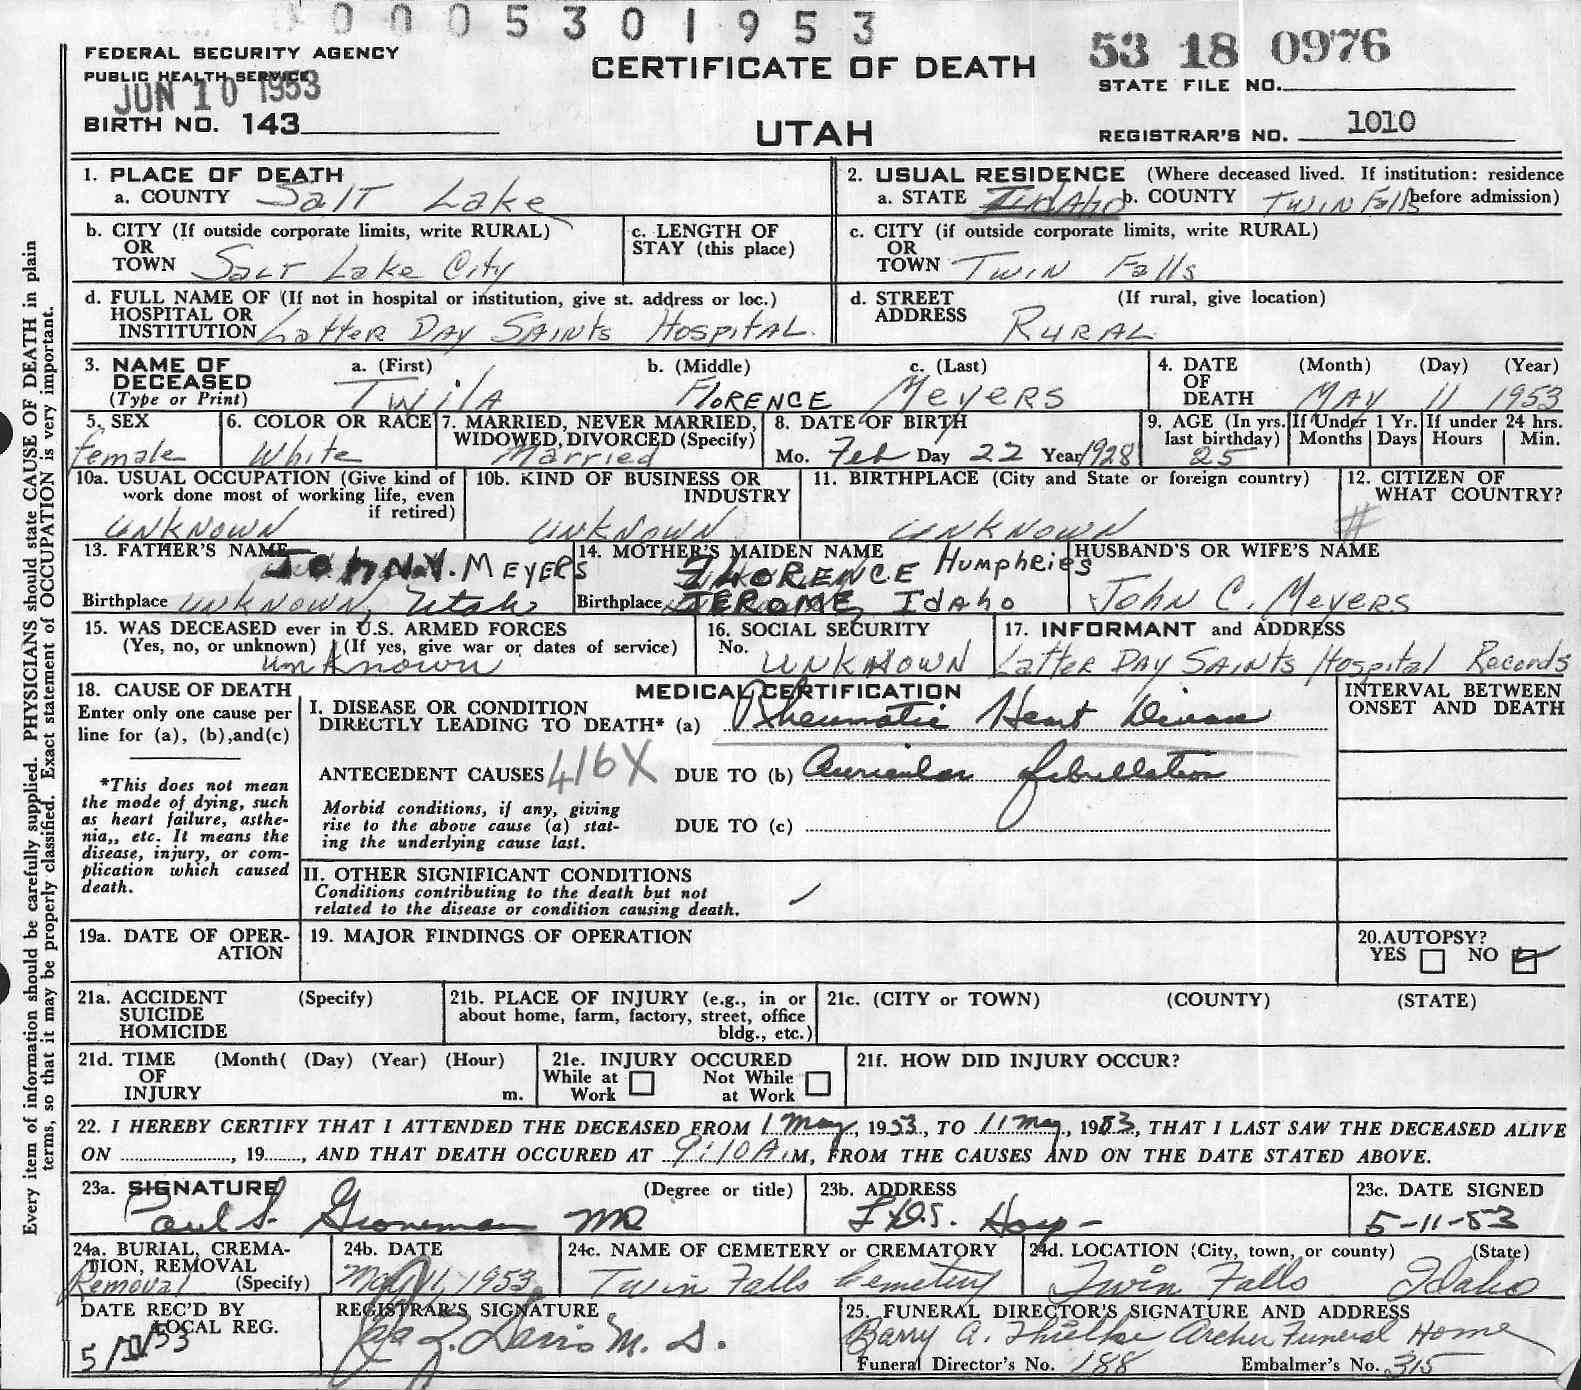 0005301953
FEDERAL SECURITY AGENCY
PUBLIC HEALTH SERVICE
JUN 10 1953
BIRTH NO. 143
CERTIFICATE OF DEATH
UTAH
53 18 0976
STATE FILE NO.
REGISTRAR'S NO. 1010
Every item of information should be carefully supplied. PHYSICIANS should state CAUSE OF DEATH in plain
terms, so that it may be properly classified. Exact statement of OCCUPATION is very important.
1. PLACE OF DEATH
a. COUNTY Salt Lake
2. USUAL RESIDENCE (Where deceased lived. If institution: residence
a. STATE Idaho b. COUNTY Twin Falls before admission)
b. CITY (If outside corporate limits, write RURAL)
OR
TOWN Salt Lake City
c. LENGTH OF
STAY (this place)
c. CITY (if outside corporate limits, write RURAL)
OR
TOWN Twin Falls
d. FULL NAME OF (If not in hospital or institution, give st. address or loc.)
HOSPITAL OR
INSTITUTION Latter Day Saints Hospital
d. STREET (If rural, give location)
ADDRESS Rural
3. NAME OF DECEASED
(Type or Print)
a. (First) b. (Middle) c. (Last)
Twila Florence Meyers
4. DATE OF DEATH
(Month) (Day) (Year)
May 11 1953
5. SEX
female
6. COLOR OR RACE
White
7. MARRIED, NEVER MARRIED,
WIDOWED, DIVORCED (Specify)
Married
8. DATE OF BIRTH
Mo. Feb Day 22 Year 1928
9. AGE (In yrs. last birthday)
25
If Under 1 Yr.
Months Days
If under 24 hrs.
Hours Min.
10a. USUAL OCCUPATION (Give kind of
work done most of working life, even
if retired)
Unknown
10b. KIND OF BUSINESS OR
INDUSTRY
Unknown
11. BIRTHPLACE (City and State or foreign country)
Unknown
12. CITIZEN OF
WHAT COUNTRY?
#
13. FATHER'S NAME
John V. Meyers
Birthplace Unknown, Utah
14. MOTHER'S MAIDEN NAME
Florence Humphries
Birthplace Jerome, Idaho
HUSBAND'S OR WIFE'S NAME
John C. Meyers
15. WAS DECEASED ever in U.S. ARMED FORCES
(Yes, no, or unknown) (If yes, give war or dates of service)
unknown
16. SOCIAL SECURITY
No. Unknown
17. INFORMANT and ADDRESS
Latter Day Saints Hospital Records
18. CAUSE OF DEATH
Enter only one cause per
line for (a), (b),and(c)
*This does not mean
the mode of dying, such
as heart failure, asthe-
nia,, etc. It means the
disease, injury, or com-
plication which caused
death.
MEDICAL CERTIFICATION
I. DISEASE OR CONDITION
DIRECTLY LEADING TO DEATH* (a) Rheumatic Heart Disease
ANTECEDENT CAUSES 416X DUE TO (b) Auricular fibrillation
Morbid conditions, if any, giving
rise to the above cause (a) stat-
ing the underlying cause last.
DUE TO (c)
INTERVAL BETWEEN
ONSET AND DEATH
II. OTHER SIGNIFICANT CONDITIONS
Conditions contributing to the death but not
related to the disease or condition causing death.
19a. DATE OF OPER-
ATION
19. MAJOR FINDINGS OF OPERATION
20.AUTOPSY?
YES NO
21a. ACCIDENT (Specify)
SUICIDE
HOMICIDE
21b. PLACE OF INJURY (e.g., in or
about home, farm, factory, street, office
bldg., etc.)
21c. (CITY or TOWN) (COUNTY) (STATE)
21d. TIME (Month( (Day) (Year) (Hour)
OF
INJURY m.
21e. INJURY OCCURED
While at Work Not While at Work
21f. HOW DID INJURY OCCUR?
22. I HEREBY CERTIFY THAT I ATTENDED THE DECEASED FROM 1 May, 1953, TO 11 May, 1953, THAT I LAST SAW THE DECEASED ALIVE
ON , 19 , AND THAT DEATH OCCURED AT 9:10 A.M, FROM THE CAUSES AND ON THE DATE STATED ABOVE.
23a. SIGNATURE (Degree or title)
Paul S. Groneman MD
23b. ADDRESS
L.D.S. Hosp-
23c. DATE SIGNED
5-11-53
24a. BURIAL, CREMA-
TION, REMOVAL
Removal (Specify)
24b. DATE
May 11, 1953
24c. NAME OF CEMETERY or CREMATORY
Twin Falls Cemetery
24d. LOCATION (City, town, or county) (State)
Twin Falls Idaho
DATE REC'D BY
LOCAL REG.
5/11/53
REGISTRAR'S SIGNATURE
Davis M. D.
25. FUNERAL DIRECTOR'S SIGNATURE AND ADDRESS
Barry A. Thielke Archer Funeral Home
Funeral Director's No. 188 Embalmer's No. 315